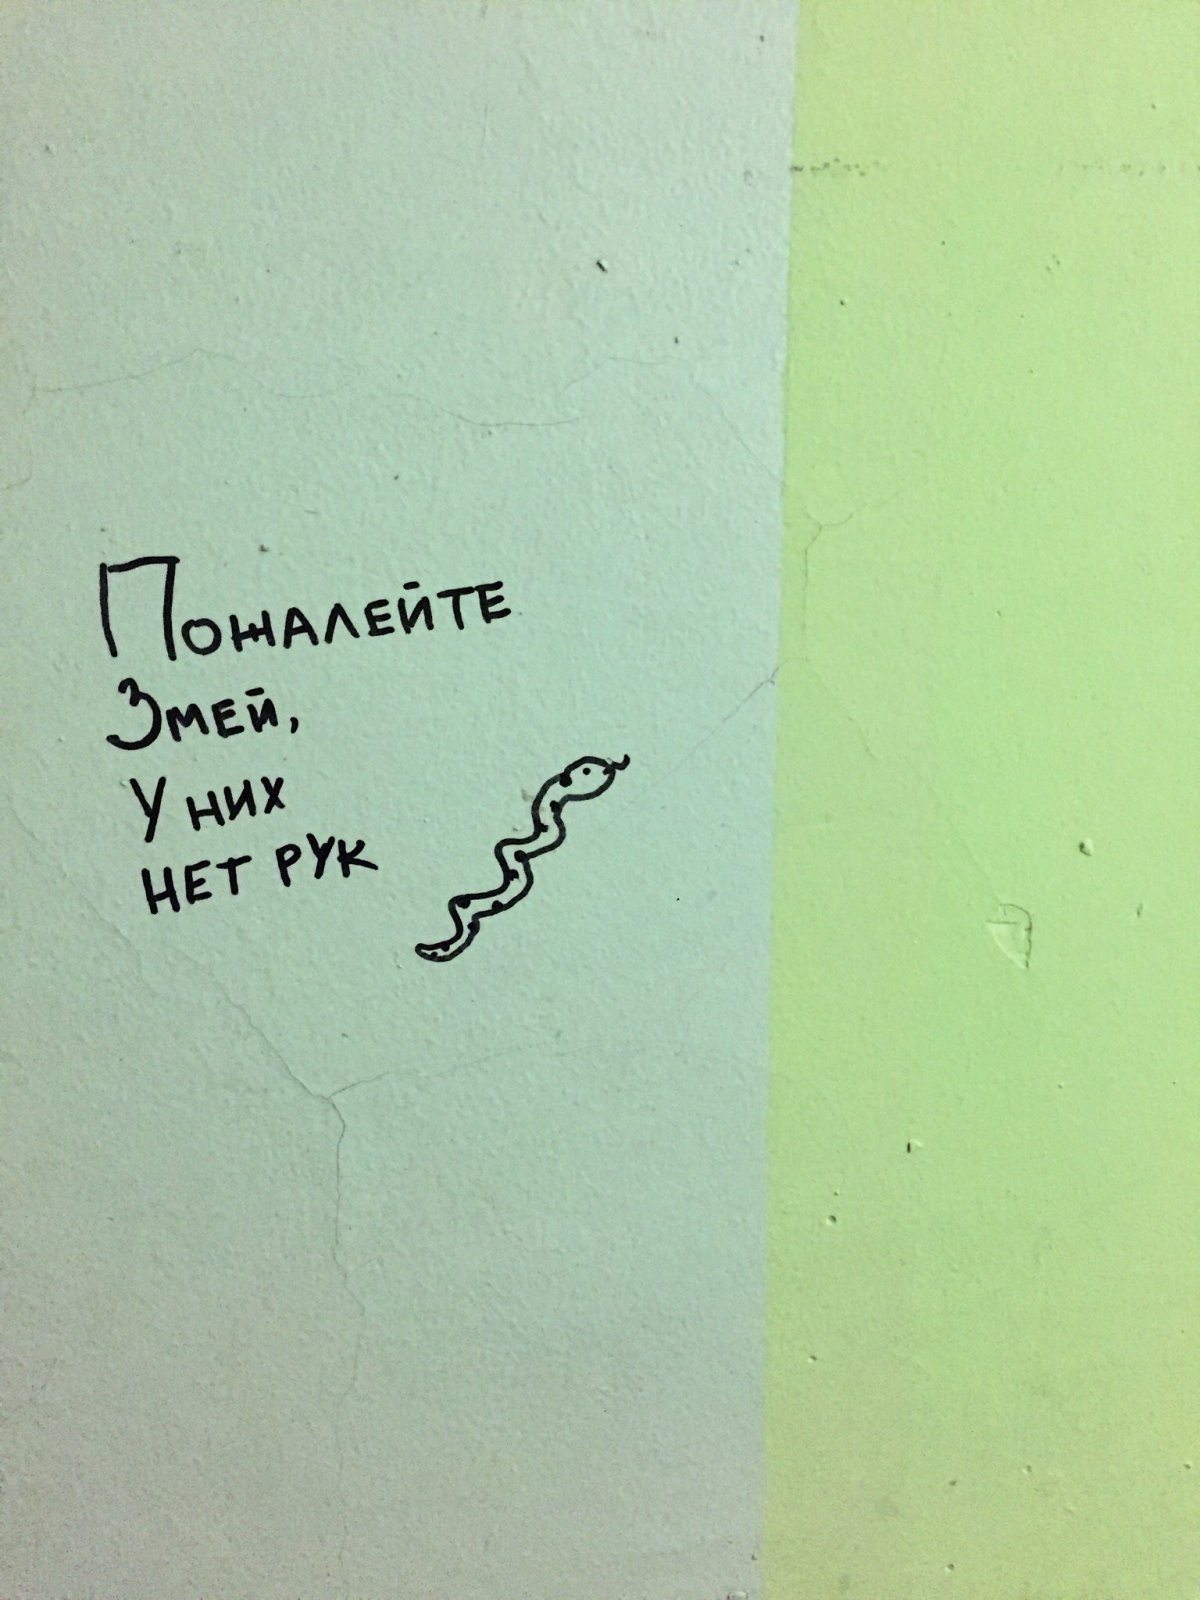 Пожалейте
Змей,
У них
нет рук